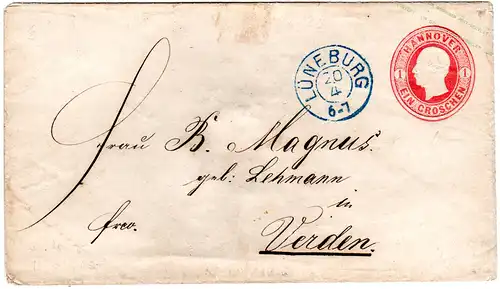 HANNOVER
1 1
EIN GROSCHEN
LÜNEBURG
20
4
6-7
Frau B. Magnus.
geb: Lehmann
in
frco.
Verden.